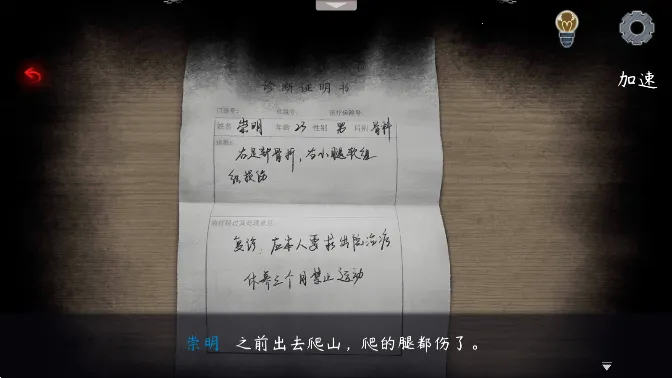 加速
诊断证明书
门诊号： 住院号： 医疗保险号：
姓名 崇明 年龄 23 性别 男 科别 骨科
诊断：
右足部骨折，右小腿软组
织挫伤
复诊，应本人要求出院治疗
休养三个月禁止运动
崇明 之前出去爬山，爬的腿都伤了。